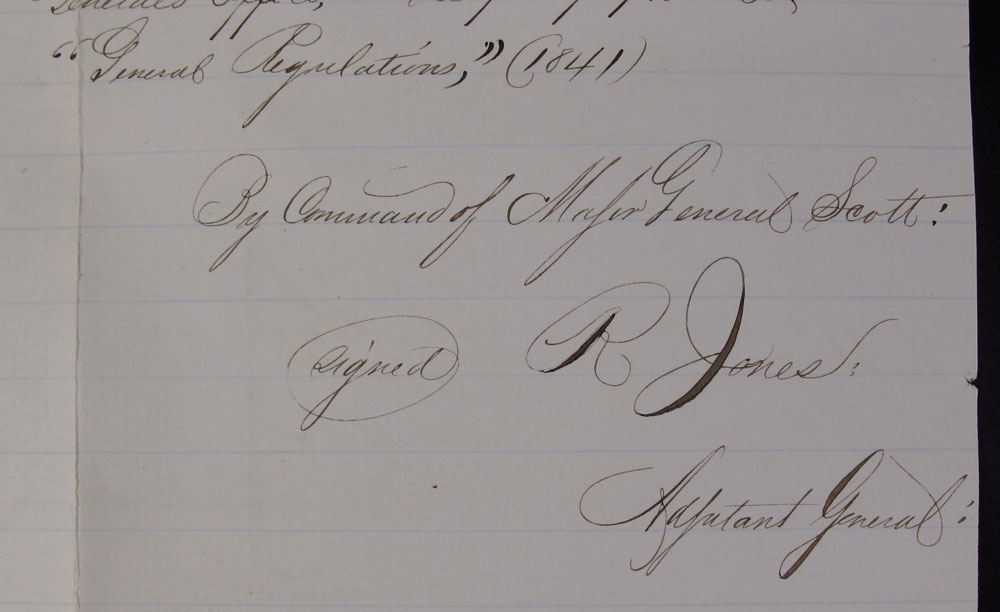 General's Office,
"General Regulations," (1841)
By Command of Major General Scott:
signed R Jones:
Adjutant General: